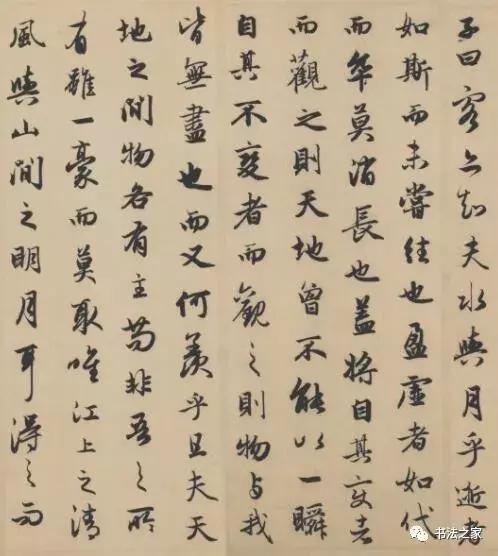 子曰客亦知夫水與月乎逝者
如斯而未嘗往也盈虛者如代
而卒莫消長也蓋將自其变者
而觀之則天地曾不能以一瞬
自其不變者而觀之則物与我
皆無盡也而又何羨乎且夫天
地之間物各有主苟非吾之所
有雖一豪而莫取唯江上之清
風與山間之明月耳得之而
书法之家